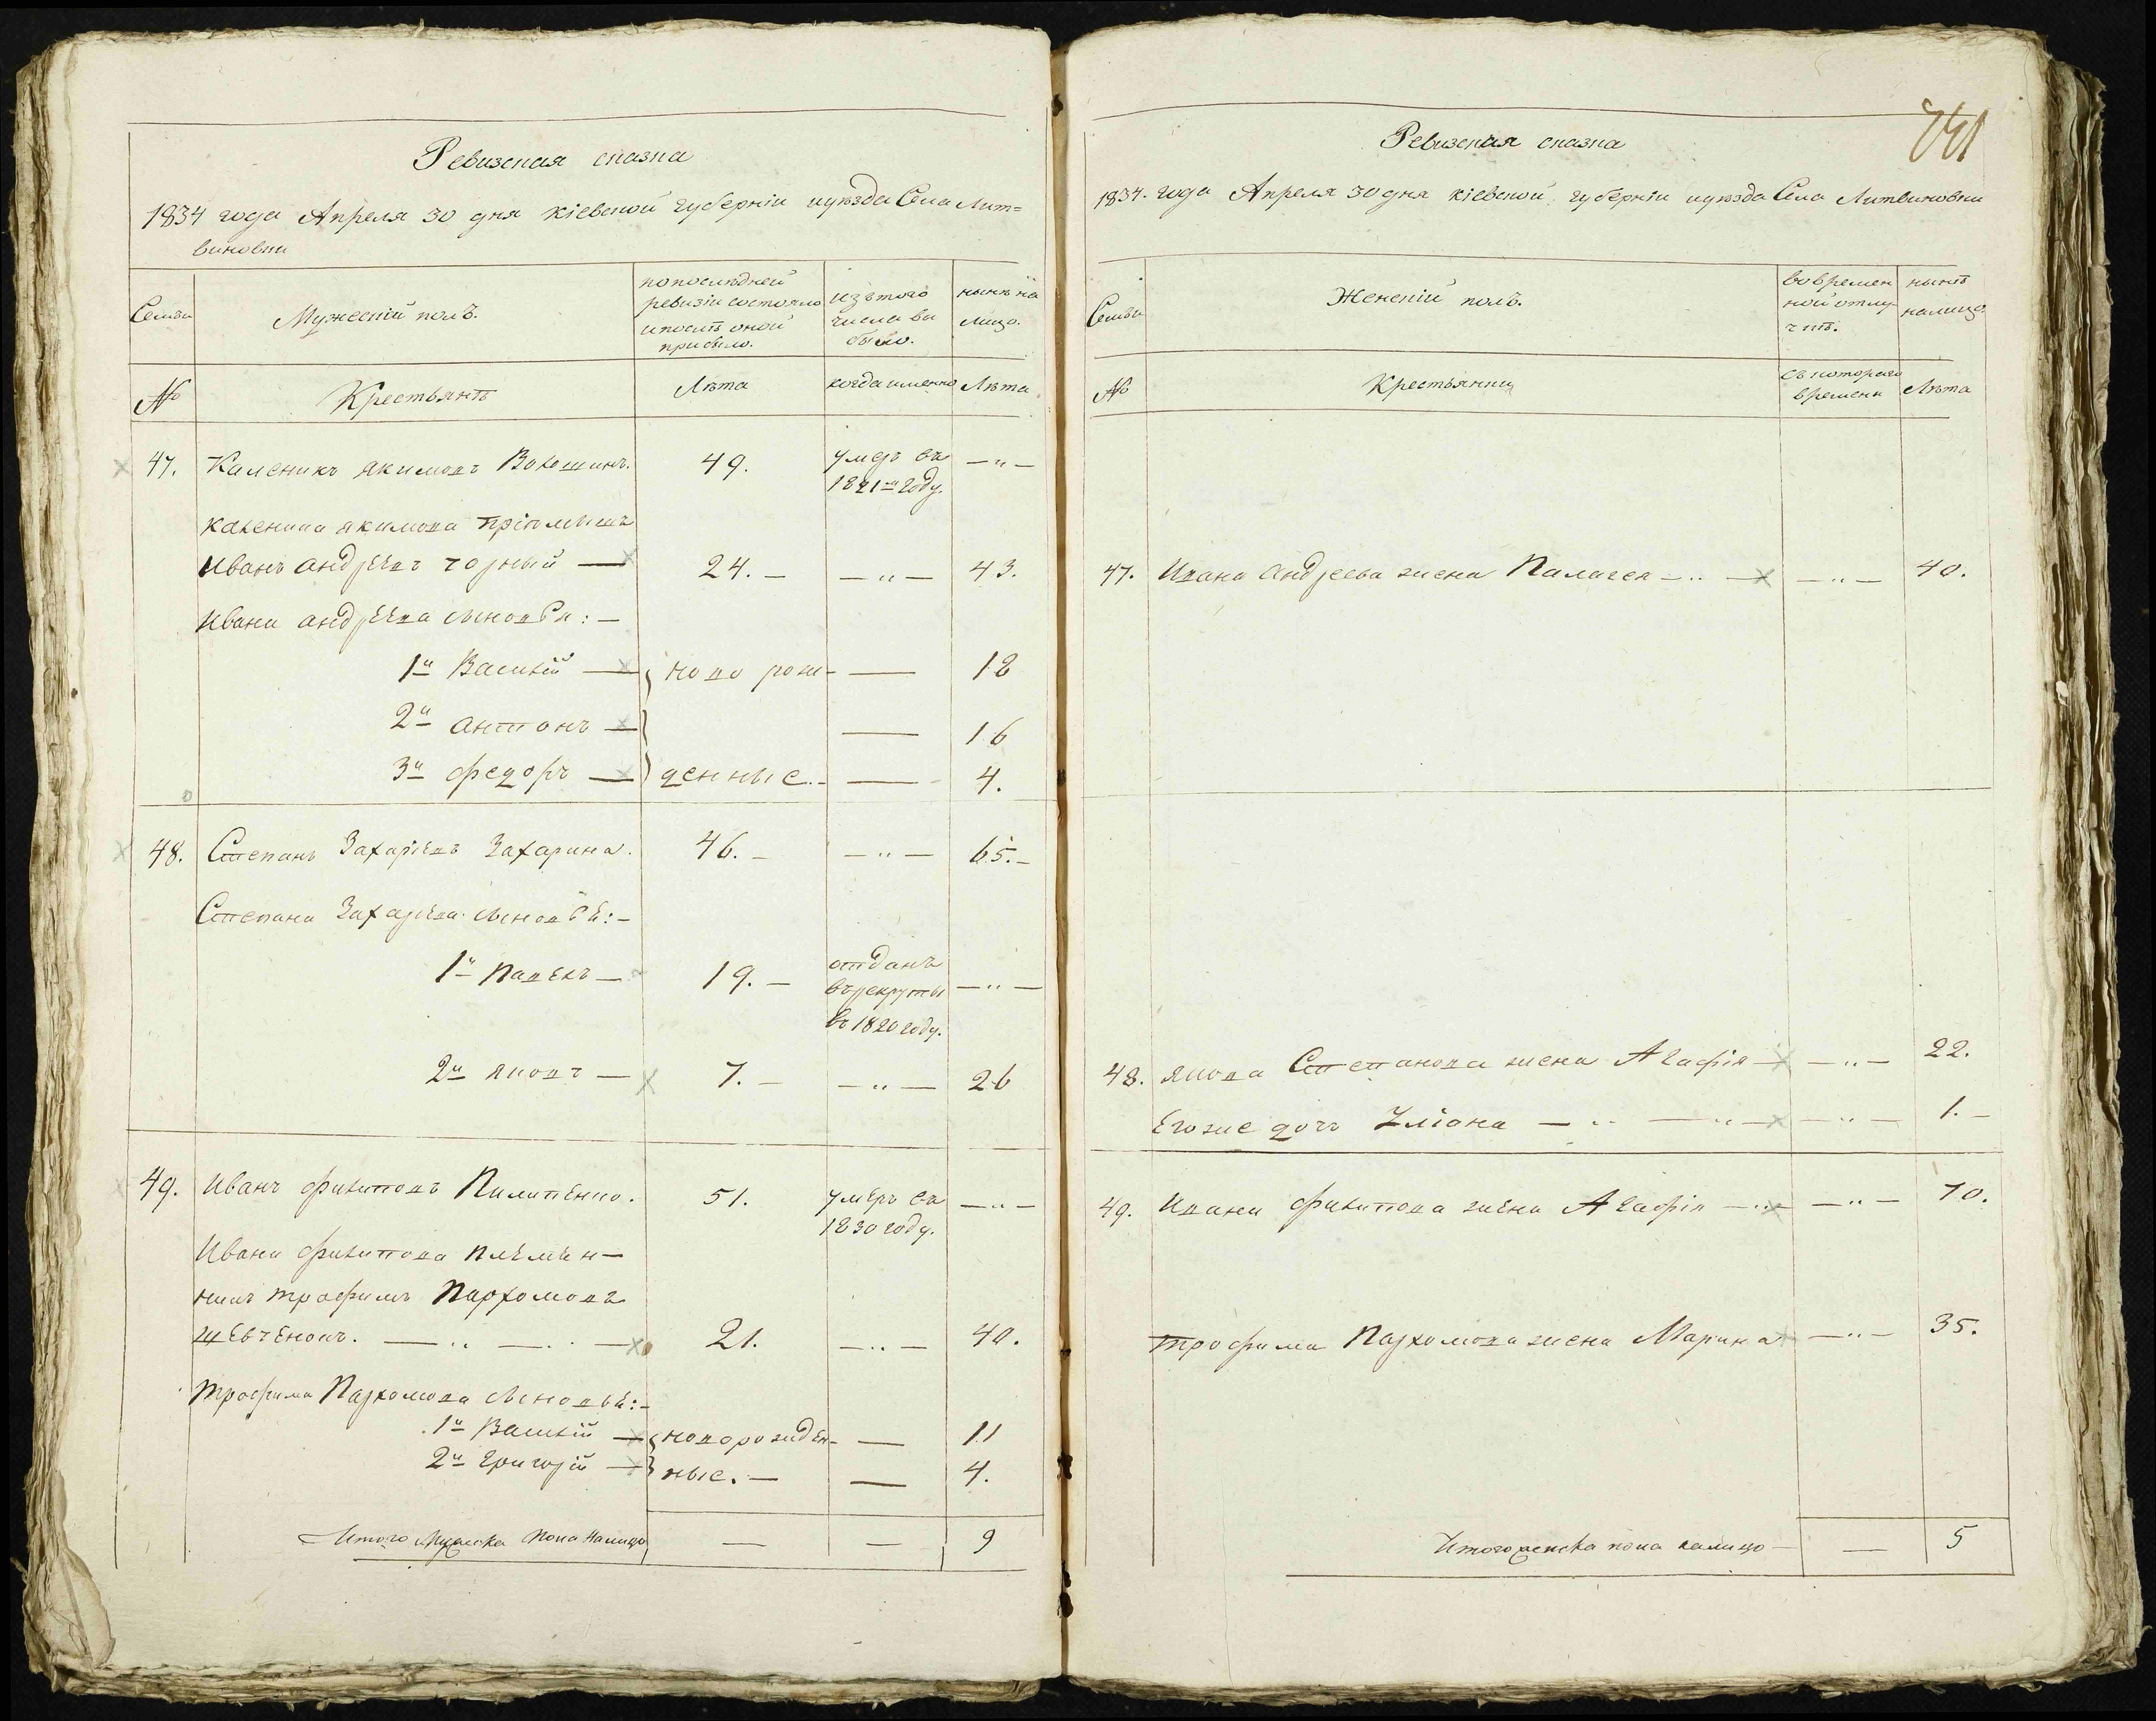 Ревизская сказка
1834 года Апреля 30 дня кіевской губерніи иуезда Села Лит=
виновки
Семьи
Мужескій полъ.
попоследней
ревизіи состояло
ипослѣ оной
прибыло.
изъ того
числа вы
было.
нынѣ на
лицо.
№
Крестьянъ
Лѣта
когда именно
Лѣта
47. Каленикъ якимовъ Волошинъ. 49. умеръ въ —"—
1821м году.
каленика якимова пріймышъ
Иванъ андреевъ чорный — 24. — —"— 43.
Ивана андреева сыновья: —
1й Василій — новорож- — 18
2й антонъ — — 16
3й федоръ — денные. — — 4.
48. Степанъ Захаріевъ Захарина. 46. — —"— 65. —
Степана Захарьева сыновья: —
1й Павелъ — 19. — отданъ —"—
въ рекруты
въ 1820 году.
2й яковъ — 7. — —"— 26
49. Иванъ филиповъ Пилипенко. 51. умеръ въ —"—
1830 году.
Ивана филипова племен-
никъ трофимъ Пархомовъ
шевченокъ. — 21. —"— 40.
трофима Пархомова сыновья: —
1й Василій — новорожден- — 11
2й григорій — ные. — — 4.
Итого Мужеска пола налицо — — 9
241
Ревизская сказка
1834. года Апреля 30 дня кіевской губерніи иуезда Села Литвиновки
Семьи
Женскій полъ.
вовремен
ной отлу
чкѣ.
нынѣ
налицо.
№
Крестьянки
съ котораго
времени
Лѣта
47. Ивана андреева жена Палагея — —"— 40.
48. якова Степанова жена Агафія — —"— 22.
Егоже дочь Уліана — —"— 1. —
49. Ивана филипова жена Агафія — —"— 70.
трофима Пархомова жена Марина —"— 35.
Итого женска пола налицо — — 5